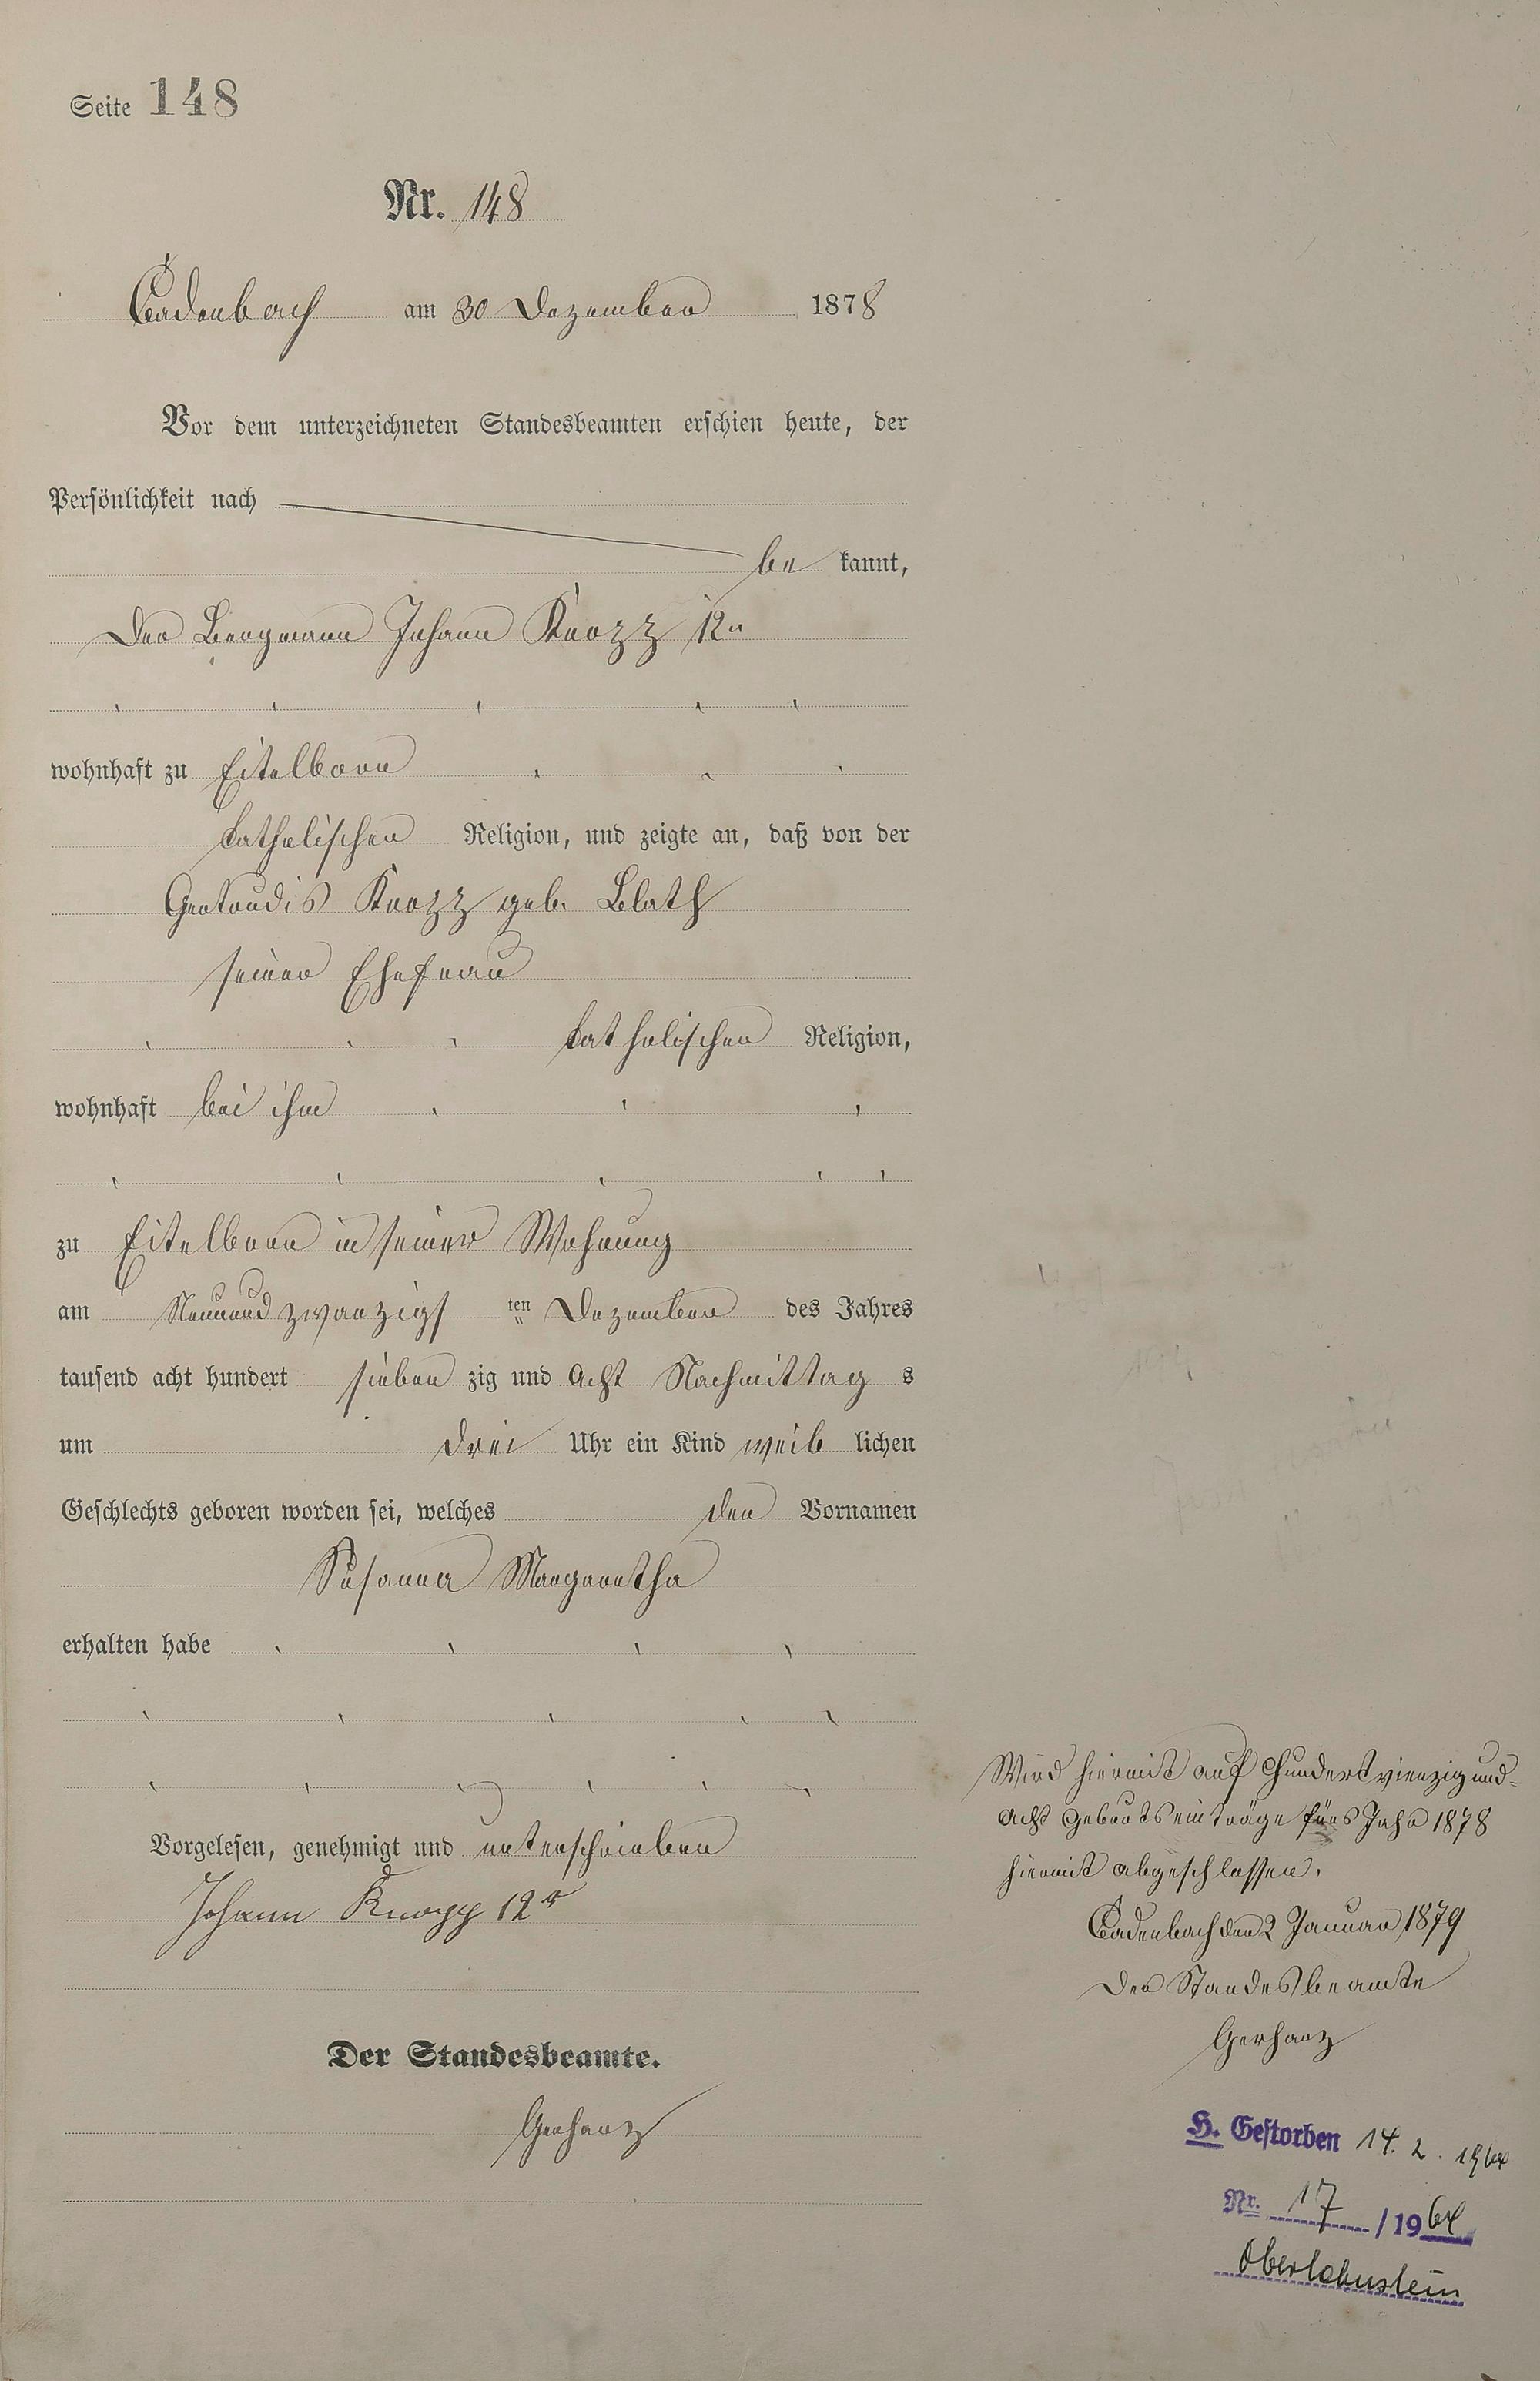 Seite 148
Nr. 148
Cadenbach am 30 Dezember 1878
Vor dem unterzeichneten Standesbeamten erschien heute, der
Persönlichkeit nach
be kannt,
Der Bergmann Johann Knopp 12r
wohnhaft zu Eitelborn
katholischer Religion, und zeigte an, daß von der
Gertrudis Knopp geb. Blath
seiner Ehefrau
katholischer Religion,
wohnhaft bei ihm
zu Eitelborn in seiner Wohnung
am Neunundzwanzigs ten Dezember des Jahres
tausend acht hundert sieben zig und acht Nachmittag s
um drei Uhr ein Kind weib lichen
Geschlechts geboren worden sei, welches den Vornamen
Susanna Margaretha
erhalten habe
Vorgelesen, genehmigt und unterschrieben
Johann Knopp 12r
Der Standesbeamte.
Gerharz
Wird hiermit auf Hundertvierzigund=
acht Geburtseinträge fürs Jahr 1878
hiermit abgeschlossen.
Cadenbach den 2 Januar 1879
Der Standesbeamte
Gerharz
H. Gestorben 14. 2. 1964
Nr. 17 / 1964
Oberlahnstein